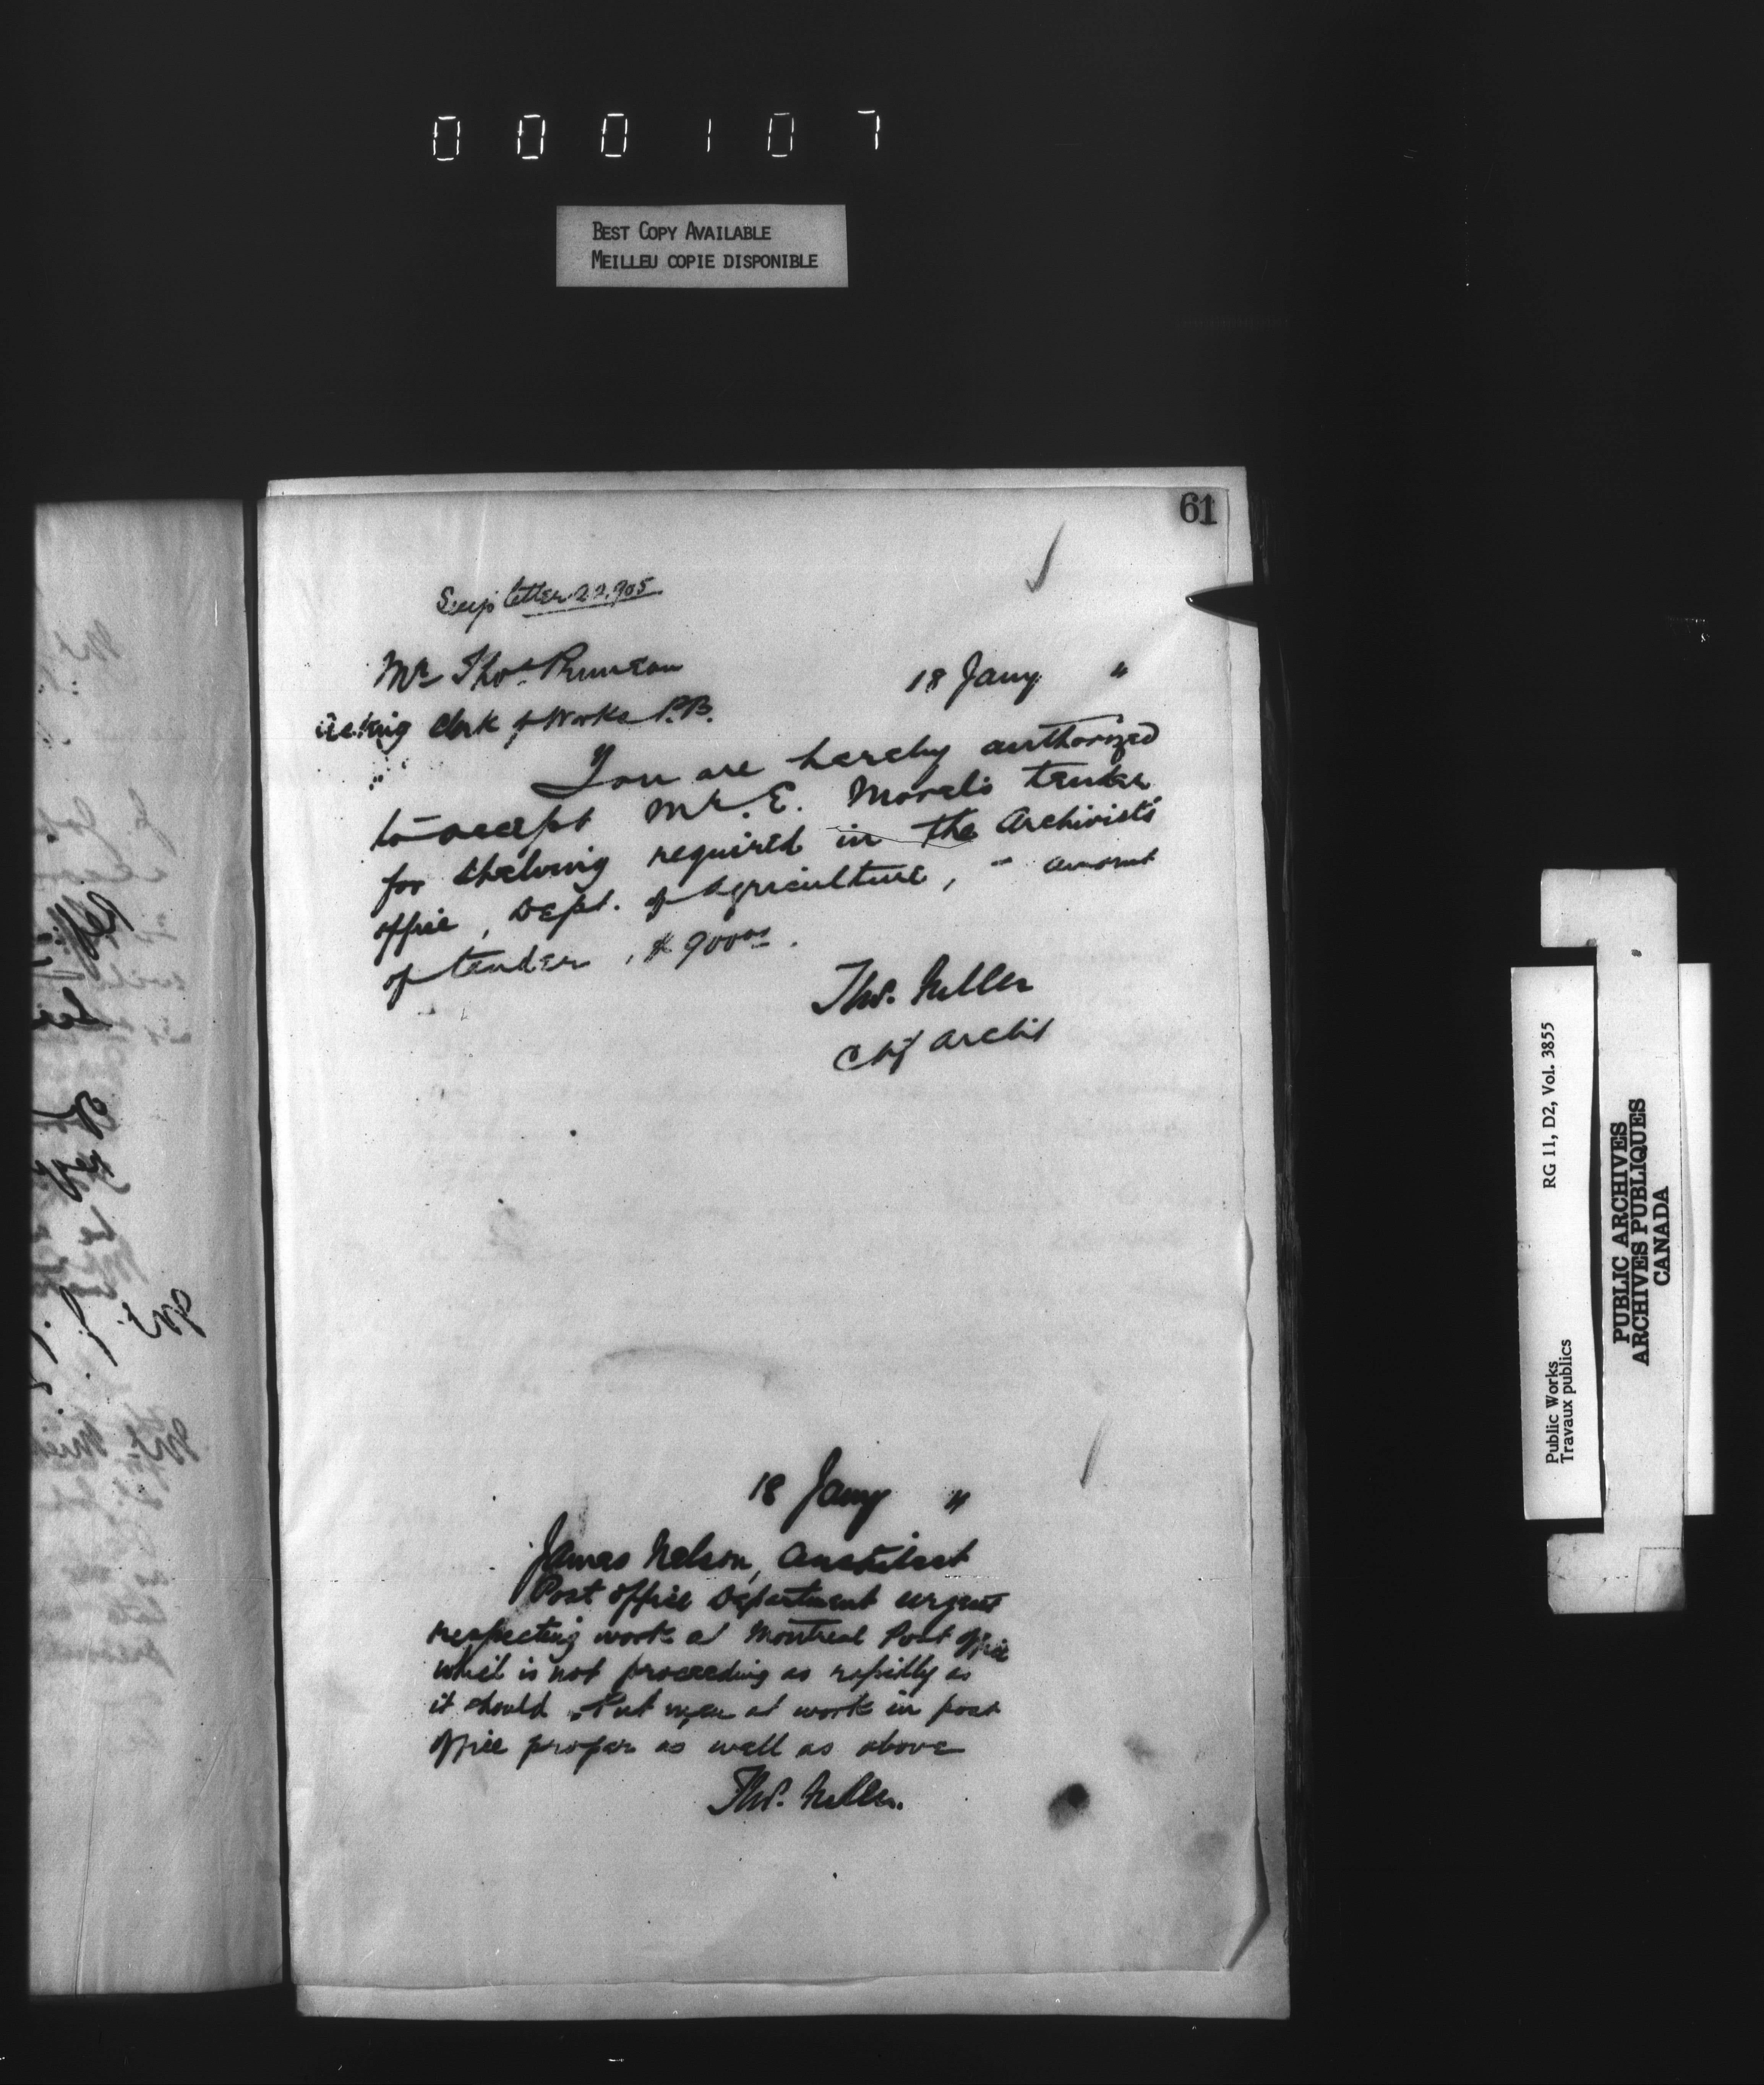 000107
BEST COPY AVAILABLE
MEILLEU COPIE DISPONIBLE
61
letter 22.905
Mr Thos
18 Jany "
Acting Clerk of Works P.B.
You are hereby authorized
to accept Mr. E. tender
for shelving required in the Archivists
office, Dept. of Agriculture, - amount
of tender, $ 900 00.
Thos. Fuller
Chf Archt
18 Jany "
James Nelson, Architect
Post office Department urgent
respecting work at Montreal Post office
which is not proceeding as rapidly as
it should. Put men at work in post
office proper as well as above
Thos. Fuller.
Public Works
Travaux publics
RG 11, D2, Vol. 3855
PUBLIC ARCHIVES
ARCHIVES PUBLIQUES
CANADA